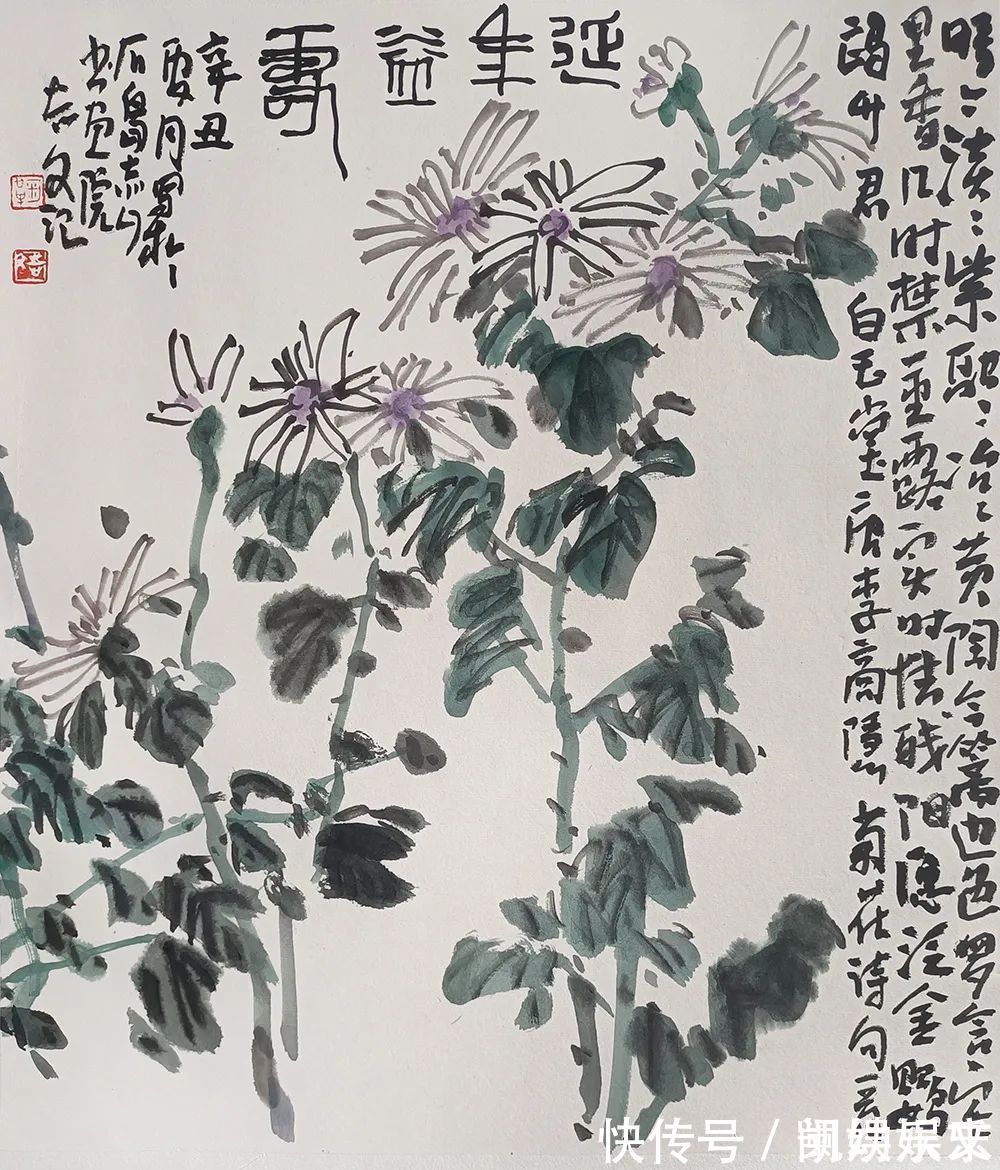 暗〻淡〻紫融〻冶〻黄陶令篱边色罗含宅
里香几时禁重露实时怯残阳泛金鹦
升君白玉堂唐李商隐菊花诗句云
延年益壽
辛丑
夏月写於
石岛赤山
书画院
文记
快传号 /